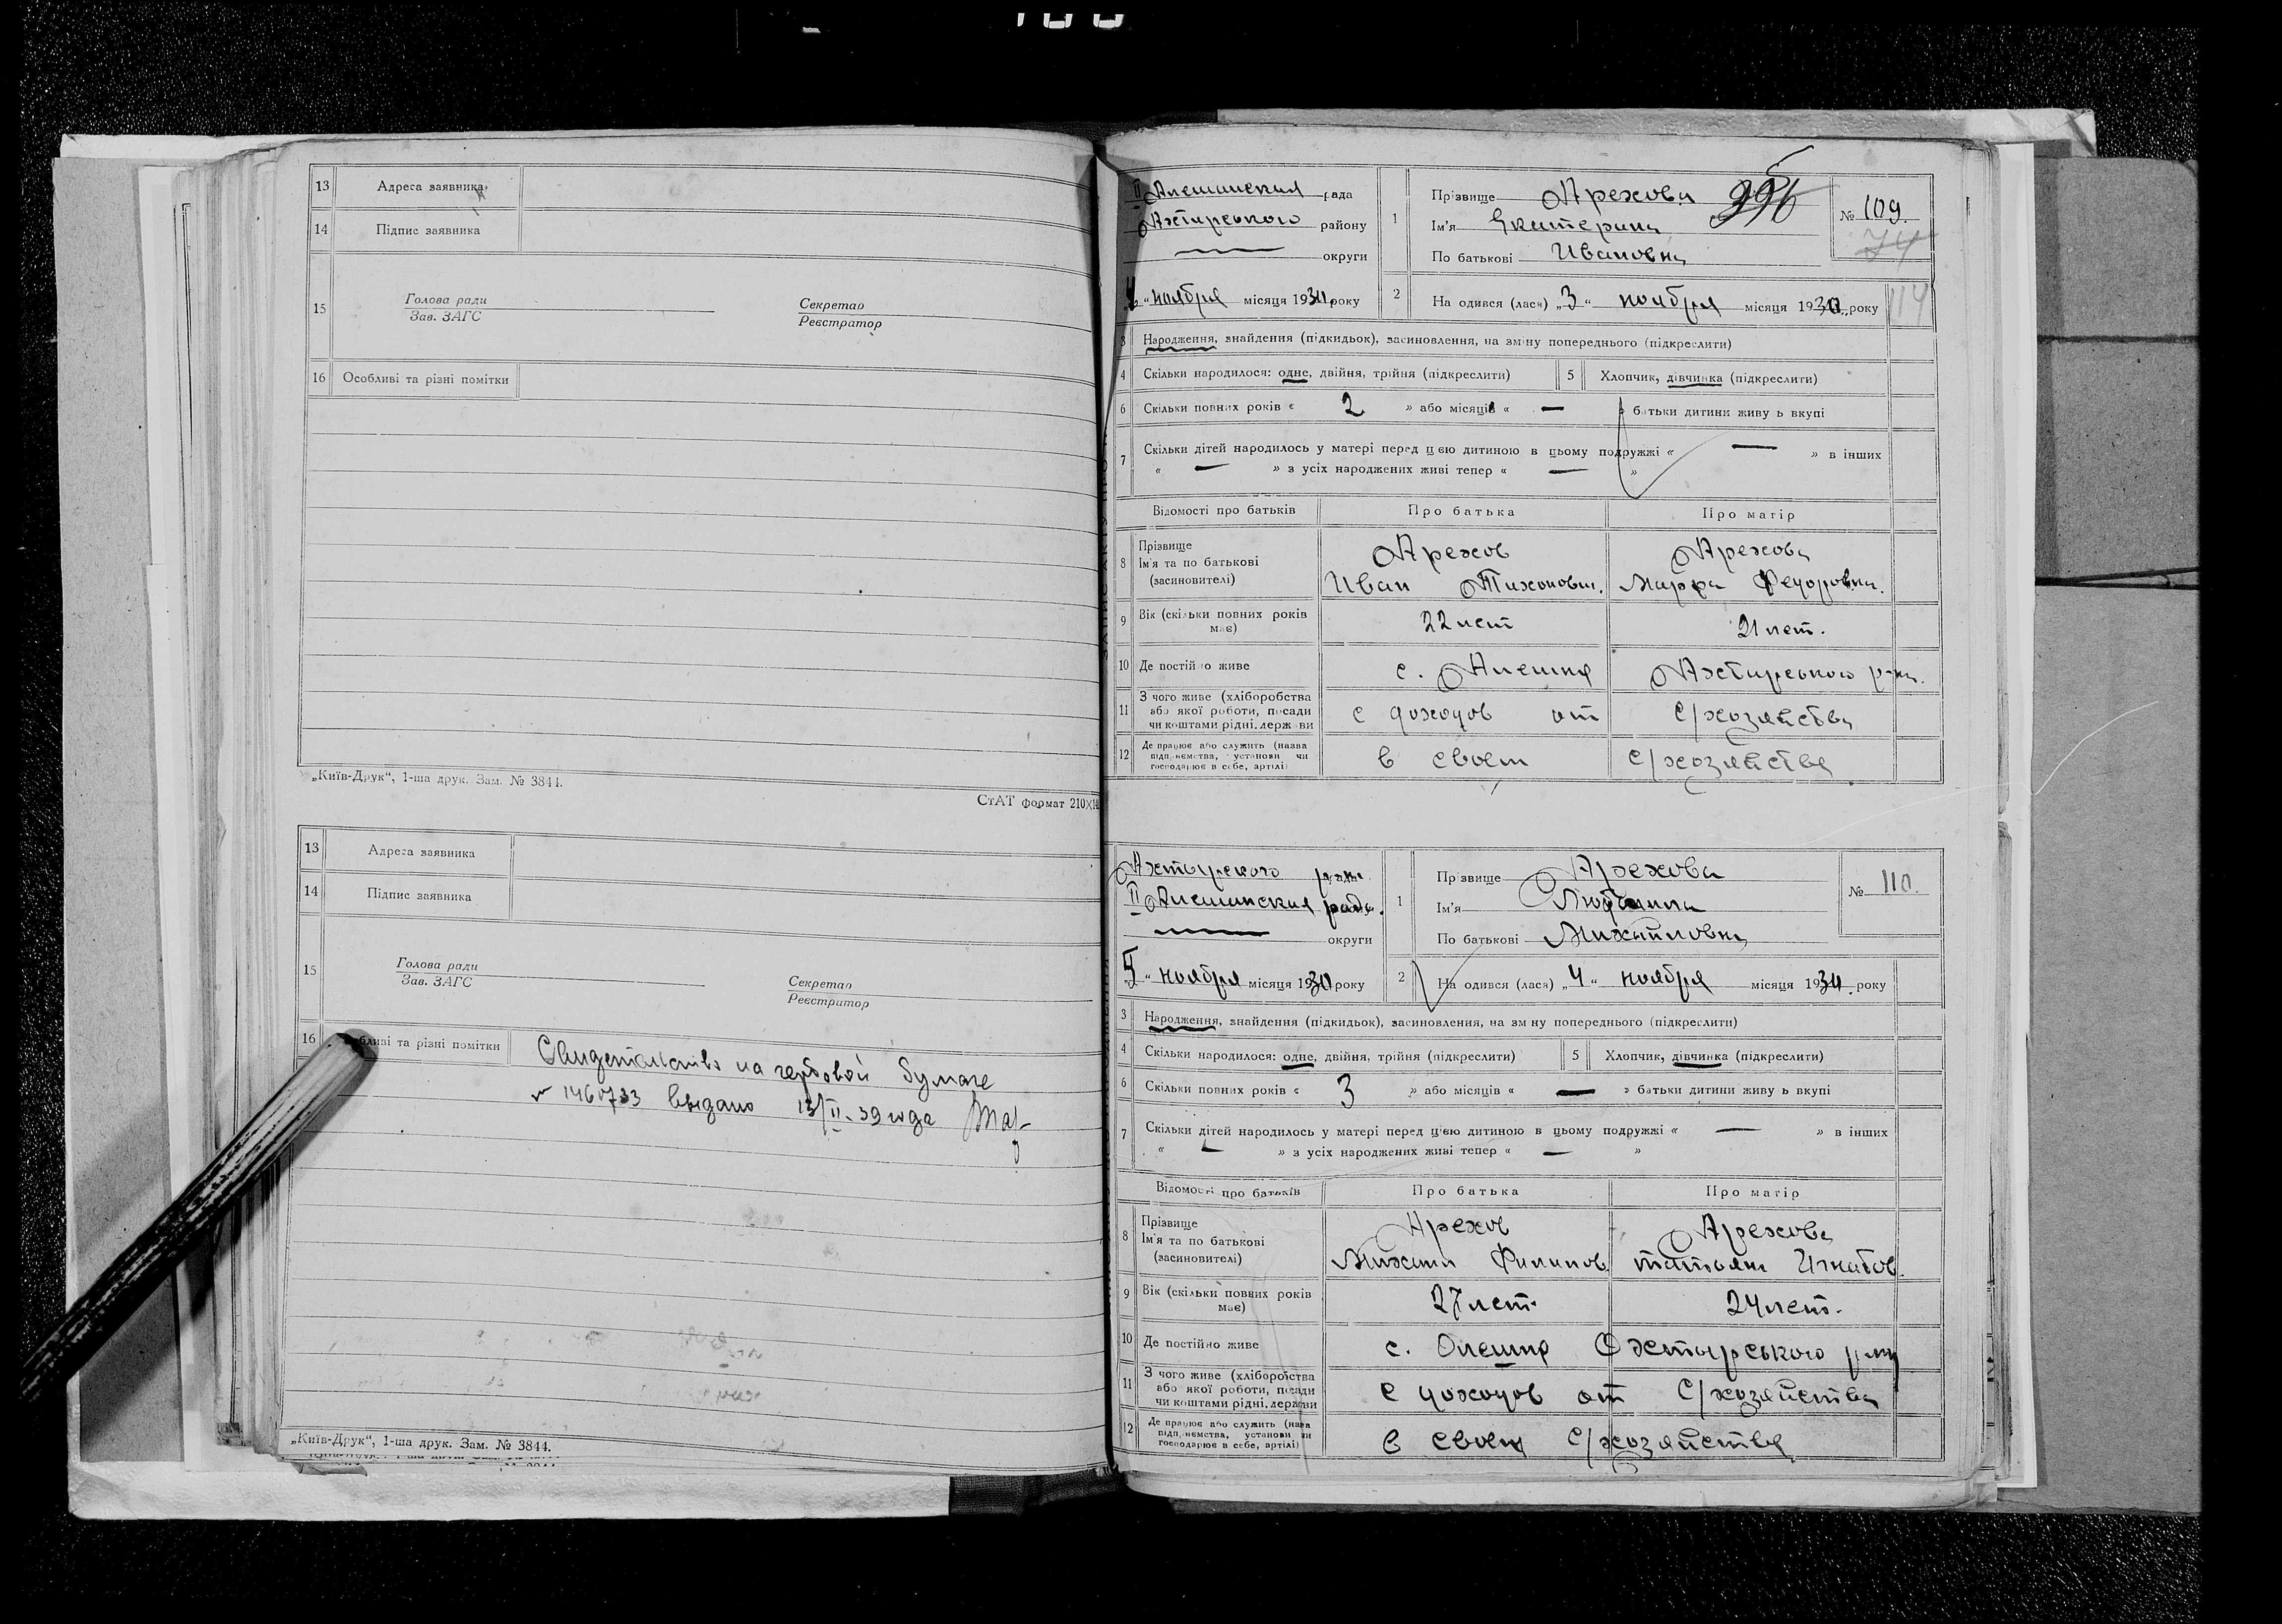 13 Адреса заявника
14 Підпис заявника
15 Голова ради
Зав. ЗАГС
Секретар
Реєстратор
16 Особливі та різні помітки
„Київ-Друк“, 1-ша друк. Зам. № 3844.
СтАТ формат 210×14
13 Адреса заявника
14 Підпис заявника
15 Голова ради
Зав. ЗАГС
Секретар
Реєстратор
16 бливі та різні помітки
Свидетельство на гербовой бумаге
№ 1460733 выдано 13/II-39 года
„Київ-Друк“, 1-ша друк. Зам. № 3844.
II Алешинская рада
Ахтирського району
округи
ноября місяця 1930 року
1 Прізвище Арехова
Ім'я Екатерина
По батькові Ивановна
396
№ 109.
74
2 На одився (лася) „3“ ноября місяця 1930 року
114
3 Народження, знайдення (підкидьок), засиновлення, на зміну попереднього (підкреслити)
4 Скільки народилося: одне, двійня, трійня (підкреслити) 5 Хлопчик, дівчинка (підкреслити)
6 Скільки повних років « 2 » або місяців « — » батьки дитини живу ь вкупі
7 Скільки дітей народилось у матері перед цією дитиною в цьому подружжі « — » в інших
« — » з усіх народжених живі тепер « — »
Відомості про батьків Про батька Про матір
8 Прізвище
Ім'я та по батькові
(засиновителі)
Арехов
Иван Тихонович.
Арехова
Марфа Федоровна.
9 Вік (скільки повних років має) 22 лет 21 лет.
10 Де постійно живе с. Алешня Ахтирського р-на.
11 З чого живе (хліборобства
або якої роботи, посади
чи коштами рідні, держави
с доходов от с/хозяйства
12 Де працює або служить (назва
підприємства, установи чи
господарює в себе, артілі)
в своем с/хозяйстве
Ахтырского р-на
II Алешинская рада.
округи
5 “ ноября місяця 1930 року
1 Прізвище Арехова
Ім'я Людмила
По батькові Михайловна
№ 110.
2 На одився (лася) „4“ ноября місяця 1930 року
3 Народження, знайдення (підкидьок), засиновлення, на зм ну попереднього (підкреслити)
4 Скільки народилося: одне, двійня, трійня (підкреслити) 5 Хлопчик, дівчинка (підкреслити)
6 Скільки повних років « 3 » або місяців « — » батьки дитини живу ь вкупі
7 Скільки дітей народилось у матері перед цією дитиною в цьому подружжі « — » в інших
« — » з усіх народжених живі тепер « — »
Відомості про батьків Про батька Про матір
8 Прізвище
Ім'я та по батькові
(засиновителі)
Арехов
Михаил Филипов
Арехова
татьяна Игнатов.
9 Вік (скільки повних років має) 27 лет. 24 лет.
10 Де постійно живе с. Олешня Охтырського р-на
11 З чого живе (хліборобства
або якої роботи, посади
чи коштами рідні, держави
с доходов от с/хозяйства
12 Де працює або служить (назва
підприємства, установи чи
господарює в себе, артілі)
в своем с/хозяйстве